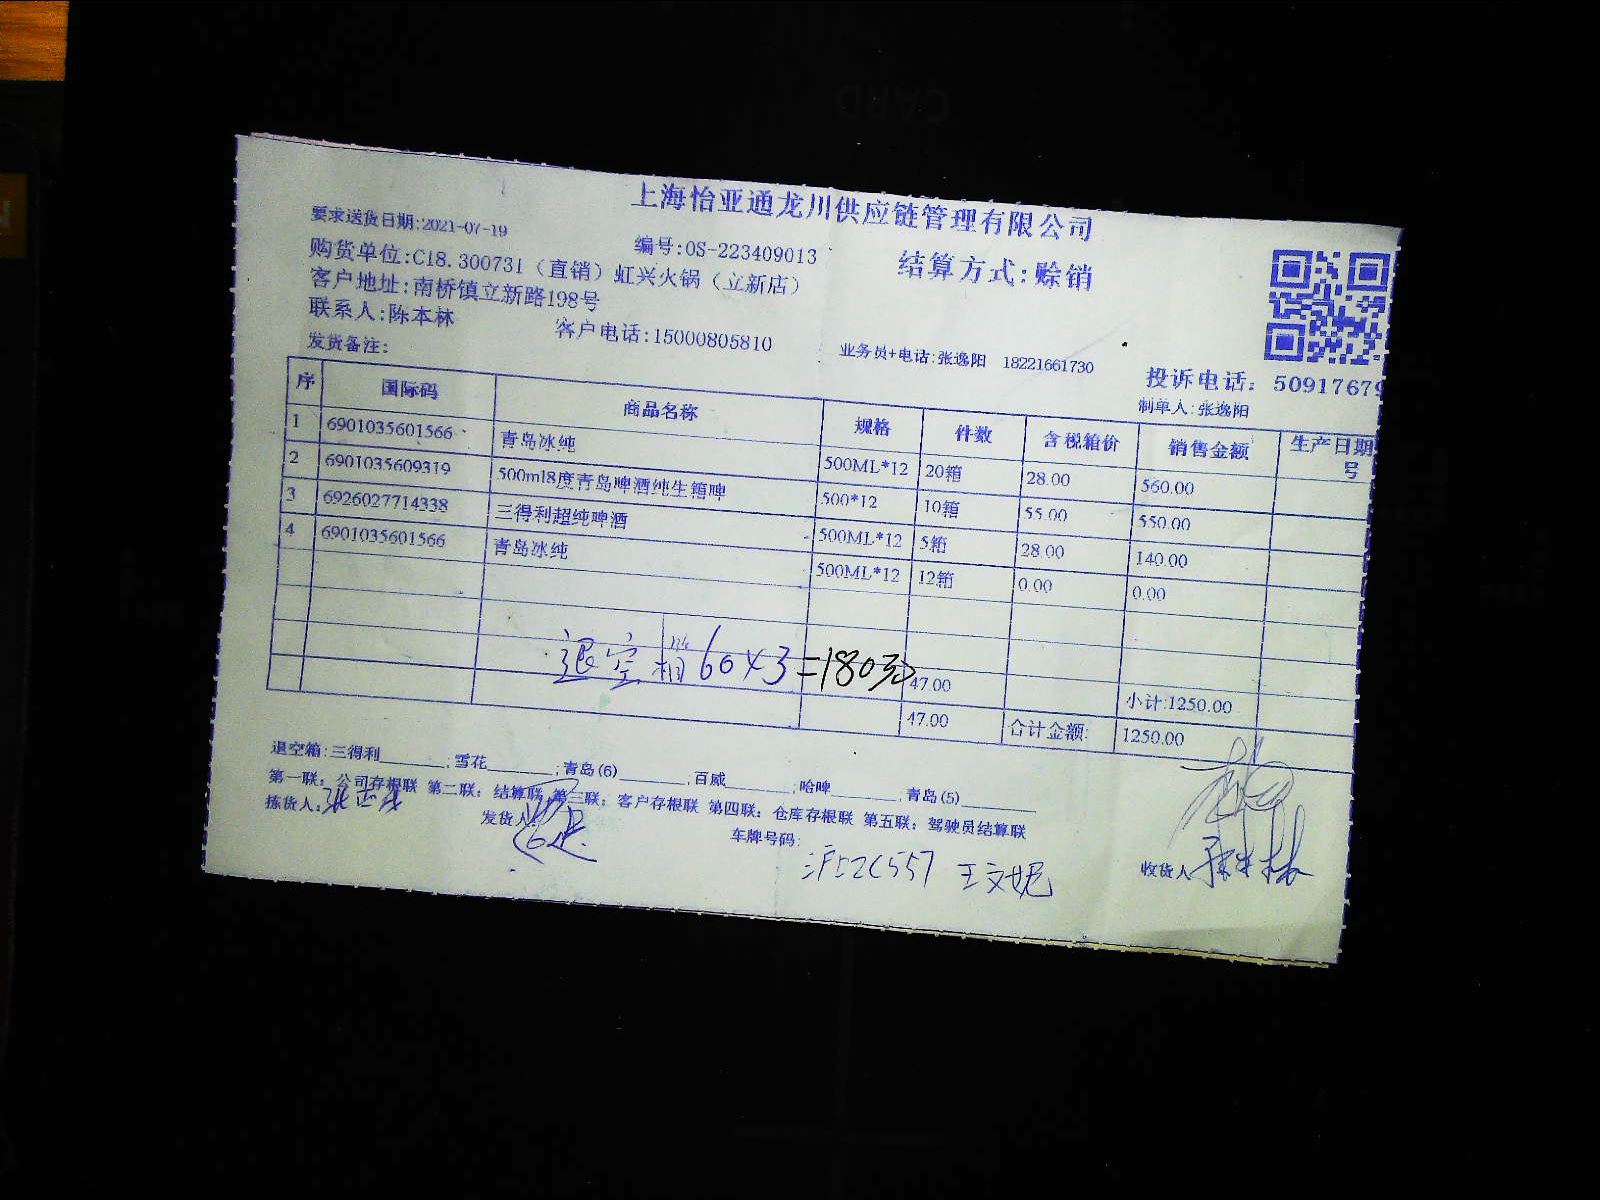 CARD
上海怡亚通龙川供应链管理有限公司
要求送货日期:2021-07-19
编号:OS-223409013
结算方式:赊销
购货单位:C18.300731（直销）虹兴火锅（立新店）
客户地址:南桥镇立新路198号
联系人:陈本林
客户电话:15000805810
业务员+电话:张逸阳 18221661730
投诉电话: 50917679
发货备注:
制单人:张逸阳
序 国际码 商品名称 规格 件数 含税箱价 销售金额 生产日期
号
1 6901035601566 青岛冰纯 500ML*12 20箱 28.00 560.00
2 6901035609319 500ml8度青岛啤酒纯生箱啤 500*12 10箱 55.00 550.00
3 6926027714338 三得利超纯啤酒 500ML*12 5箱 28.00 140.00
4 6901035601566 青岛冰纯 500ML*12 12箱 0.00 0.00
退空箱60×3=180元
47.00 小计:1250.00
47.00 合计金额: 1250.00
退空箱:三得利______;雪花______;青岛(6)______;百威______;哈啤______;青岛(5)______
第一联: 公司存根联 第二联: 结算联 第三联: 客户存根联 第四联: 仓库存根联 第五联: 驾驶员结算联
拣货人:
发货人:
车牌号码:
王文妮
收货人